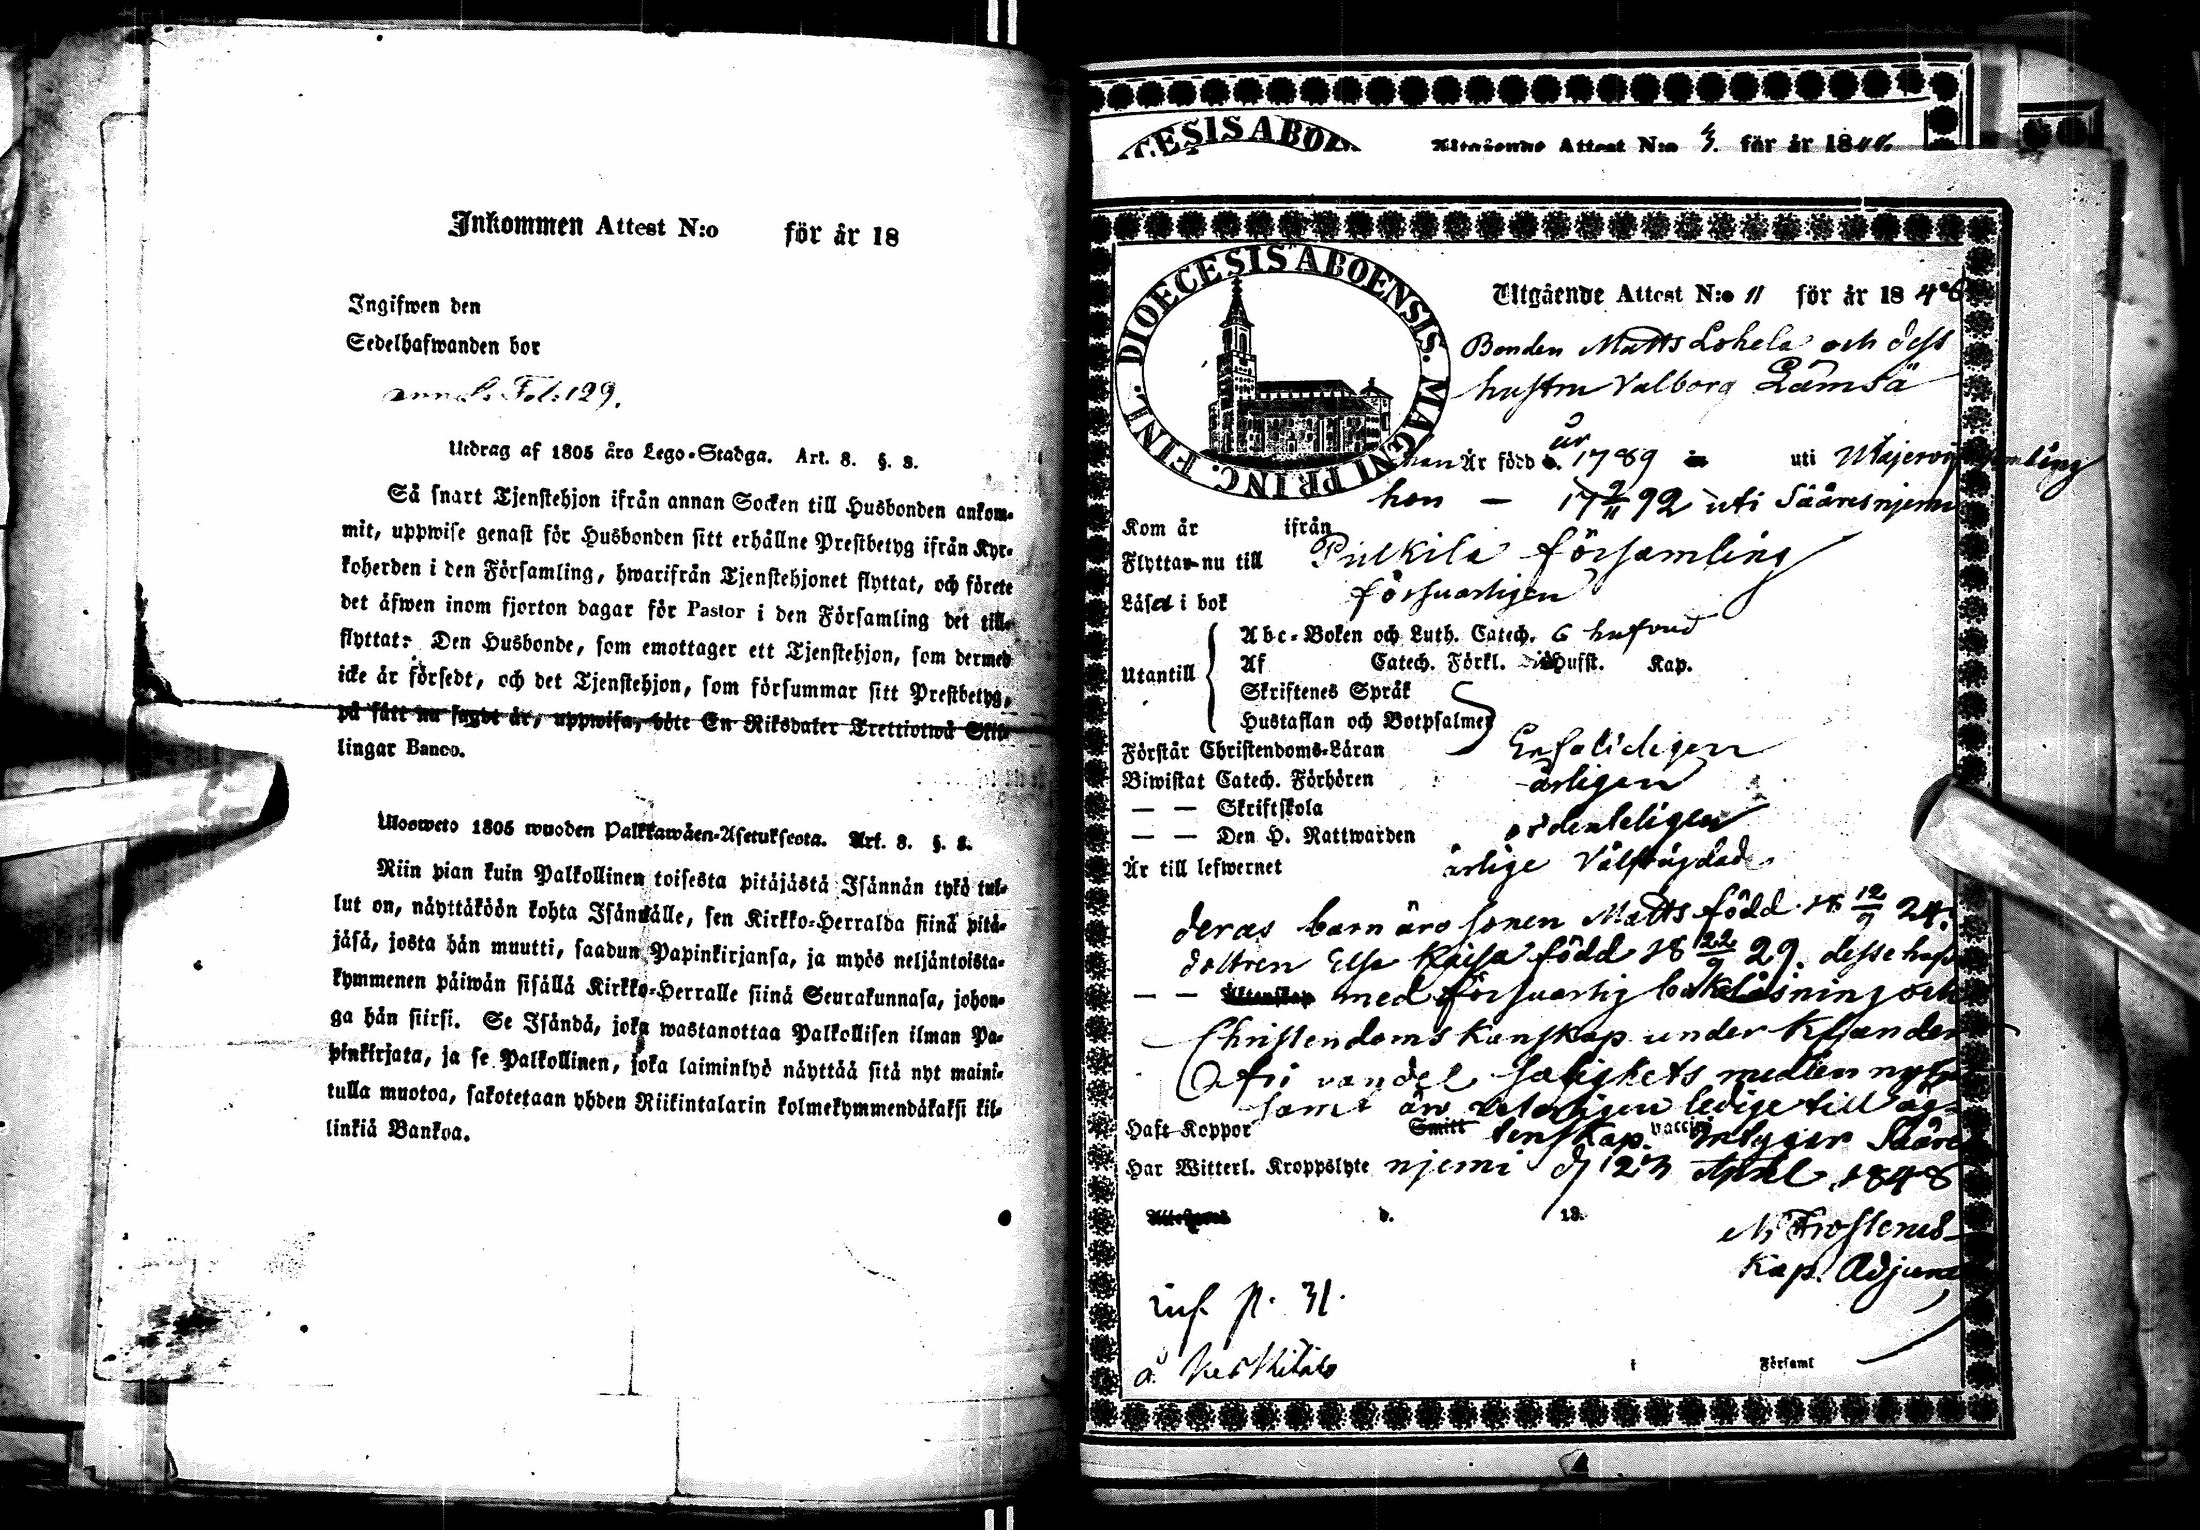 Inkommen Attest N:o för år 18
Ingifwen den
Sedelhafwanden bor
Fol: 129.
Utdrag af 1805 års Lego-Stadga. Art. 8. §. 3.
Så snart Tjenstehjon ifrån annan Socken till Husbonden ankom-
mit, uppwise genast för Husbonden sitt erhållne Prestbetyg ifrån Kyr-
koherden i den Församling, hwarifrån Tjenstehjonet flyttat, och förete
det äfwen inom fjorton dagar för Pastor i den Församling det till-
flyttat: Den Husbonde, som emottager ett Tjenstehjon, som dermed
icke är försedt, och det Tjenstehjon, som försummar sitt Prestbetyg,
på sätt nu sagdt är, uppwisa, böte En Riksdaler Trettiotwå Skil-
lingar Banco.
Ulosweto 1805 wuoden Palkkawäen-Asetuksesta. Art. 8. §. 3.
Niin pian kuin Palkollinen toisesta pitäjästä Isännän tykö tul-
lut on, näyttäköön kohta Isännälle, sen Kirkko-Herralda siinä pitä-
jäsä, josta hän muutti, saadun Papinkirjansa, ja myös neljäntoista-
kymmenen päiwän sisällä Kirkko-Herralle siinä Seurakunnasa, johon-
ga hän siirsi. Se Isändä, joka wastanottaa Palkollisen ilman Pa-
pinkirjata, ja se Palkollinen, joka laiminlyö näyttää sitä nyt maini-
tulla muotoa, sakotetaan yhden Riikintalarin kolmekymmendäkaksi kil-
linkiä Bankoa.
CESIS ABOE
Utgående Attest N:o 3. för år 1846
DIOECESIS ABOENSIS. MAGNI PRINC. FINL.
Utgående Attest N:o 11 för år 1848
Bonden Matts Lohela och dess
hustru Valborg Lämsä
han Är född år 1789 uti Uläjerwi församling
hon — 17 2/11 92 uti Sääresnjemi
Kom år ifrån
Flyttar nu till Pulkila församling
Läsa i bok försvarligen
Utantill
Abc-Boken och Luth. Catech. 6 hufvud
Af Catech. Förkl. Husst. Kap.
Skriftenes Språk
Hustaflan och Botpsalmer
Förstår Christendoms-Läran Enfaldigen
Biwistat Catech. Förhören årligen
— — Skriftskola
— — Den H. Nattwarden ordenteligen
Är till lefwernet ärlige välfrägdade
deras barn äro sonen Matts född 18 12/9 24.
dottren Elsa Kaisa född 18 22/9 29. desse hafva
— — Äktenskap med försvarlig bokläsning och
Christendoms Kunskap under Klander
fri vandel salighets medlen nyttja
samt äro veterligen ledige till äg-
Haft Koppor Smitt tenskap. vaccin intygar Sääres
Har Witterl. Kroppslyte njemi d 23 April 1848
Attesteras d. 18
M Frosterus
Kap. Adjunct
inf. p. 31.
å Keskitalo
i Församl